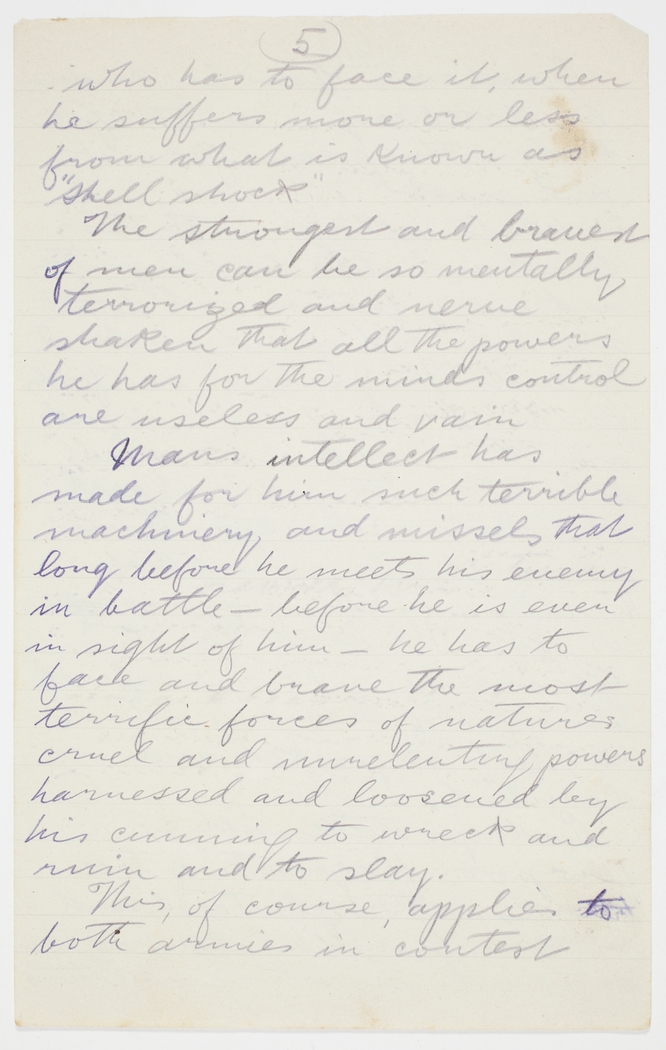 5
who has to face it, when
he suffers more or less
from what is known as
"shell shock"
The strongest and bravest
of men can be so mentally
terrorized and nerve
shaken that all the powers
he has for the minds control
are useless and vain
Mans intellect has
made for him such terrible
machinery and missels that
long before he meets his enemy
in battle – before he is even
in sight of him – he has to
face and brave the most
terrific forces of natures
cruel and unrelenting powers
harnessed and loosened by
his cunning to wreck and
ruin and to slay.
This, of course, applies to
both armies in contest